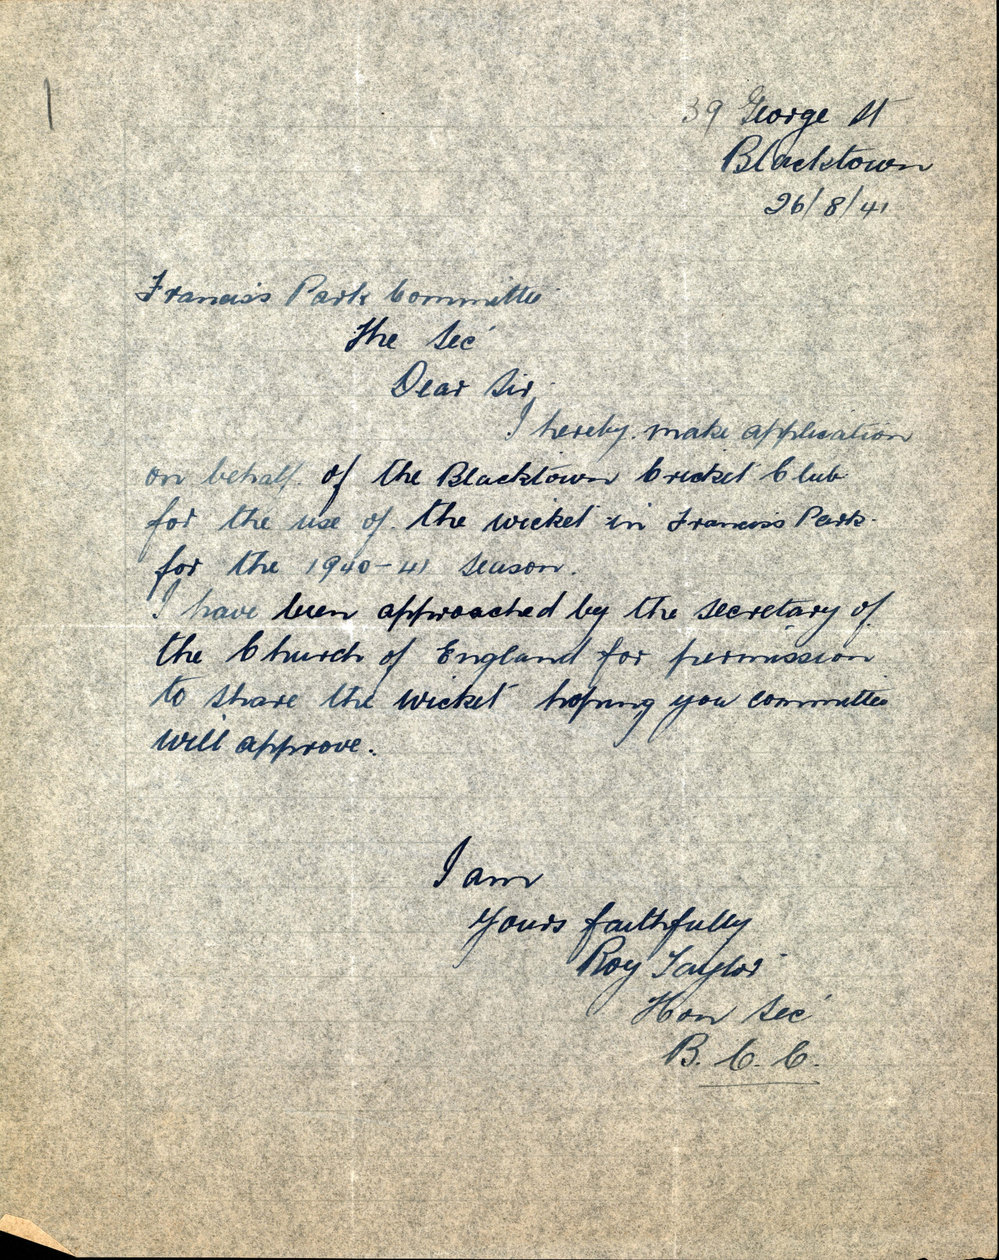 39 George St
Blacktown
26/8/41
Francis's Park Committee
The Sec'
Dear Sir,
I hereby make application
on behalf of the Blacktown Cricket Club
for the use of the wicket in Francis's Park
for the 1940-41 season.
I have been approached by the secretary of
the Church of England for permission
to share the wicket hoping you committee
will approve.
I am
Yours faithfully
Roy Taylor
Hon Sec'
B. C. C.